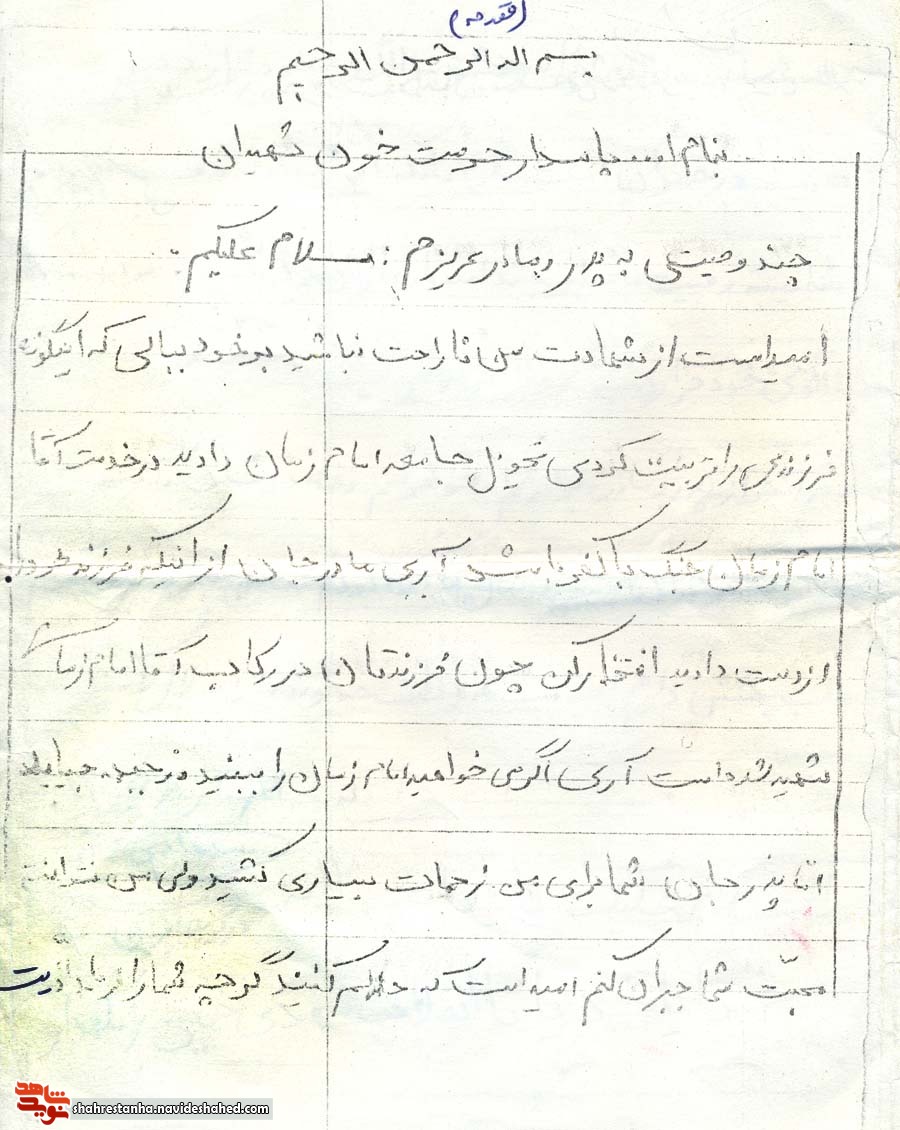 (مقدمه)
بسم اله الرحمن الرحیم
بنام اله پاسدار حرمت خون شهیدان
چند وصیتی به پدر و مادر عزیزم: سلام علیکم.
امید است از شهادت من ناراحت نباشید بر خود ببالی که اینگونه
فرزندی را تربیت کردی تحویل جامعه امام زمان دادید در خدمت آقا
امام زمان جنگ با کفر باشد آری مادر جان از اینکه فرزند خود را
از دست دادید افتخار کن چون فرزندتان در رکاب آقا امام زمان
شهید شده است آری اگر می خواهید امام زمان را ببینید در جبهه بیایید
اما پدر جان شما برای من زحمات بسیاری کشید ولی من نتوانستم
محبّت شما جبران کنم امید است که حلالم کنید گرچه شما را اذیت
نوید شاهد
shahrestanha.navideshahed.com